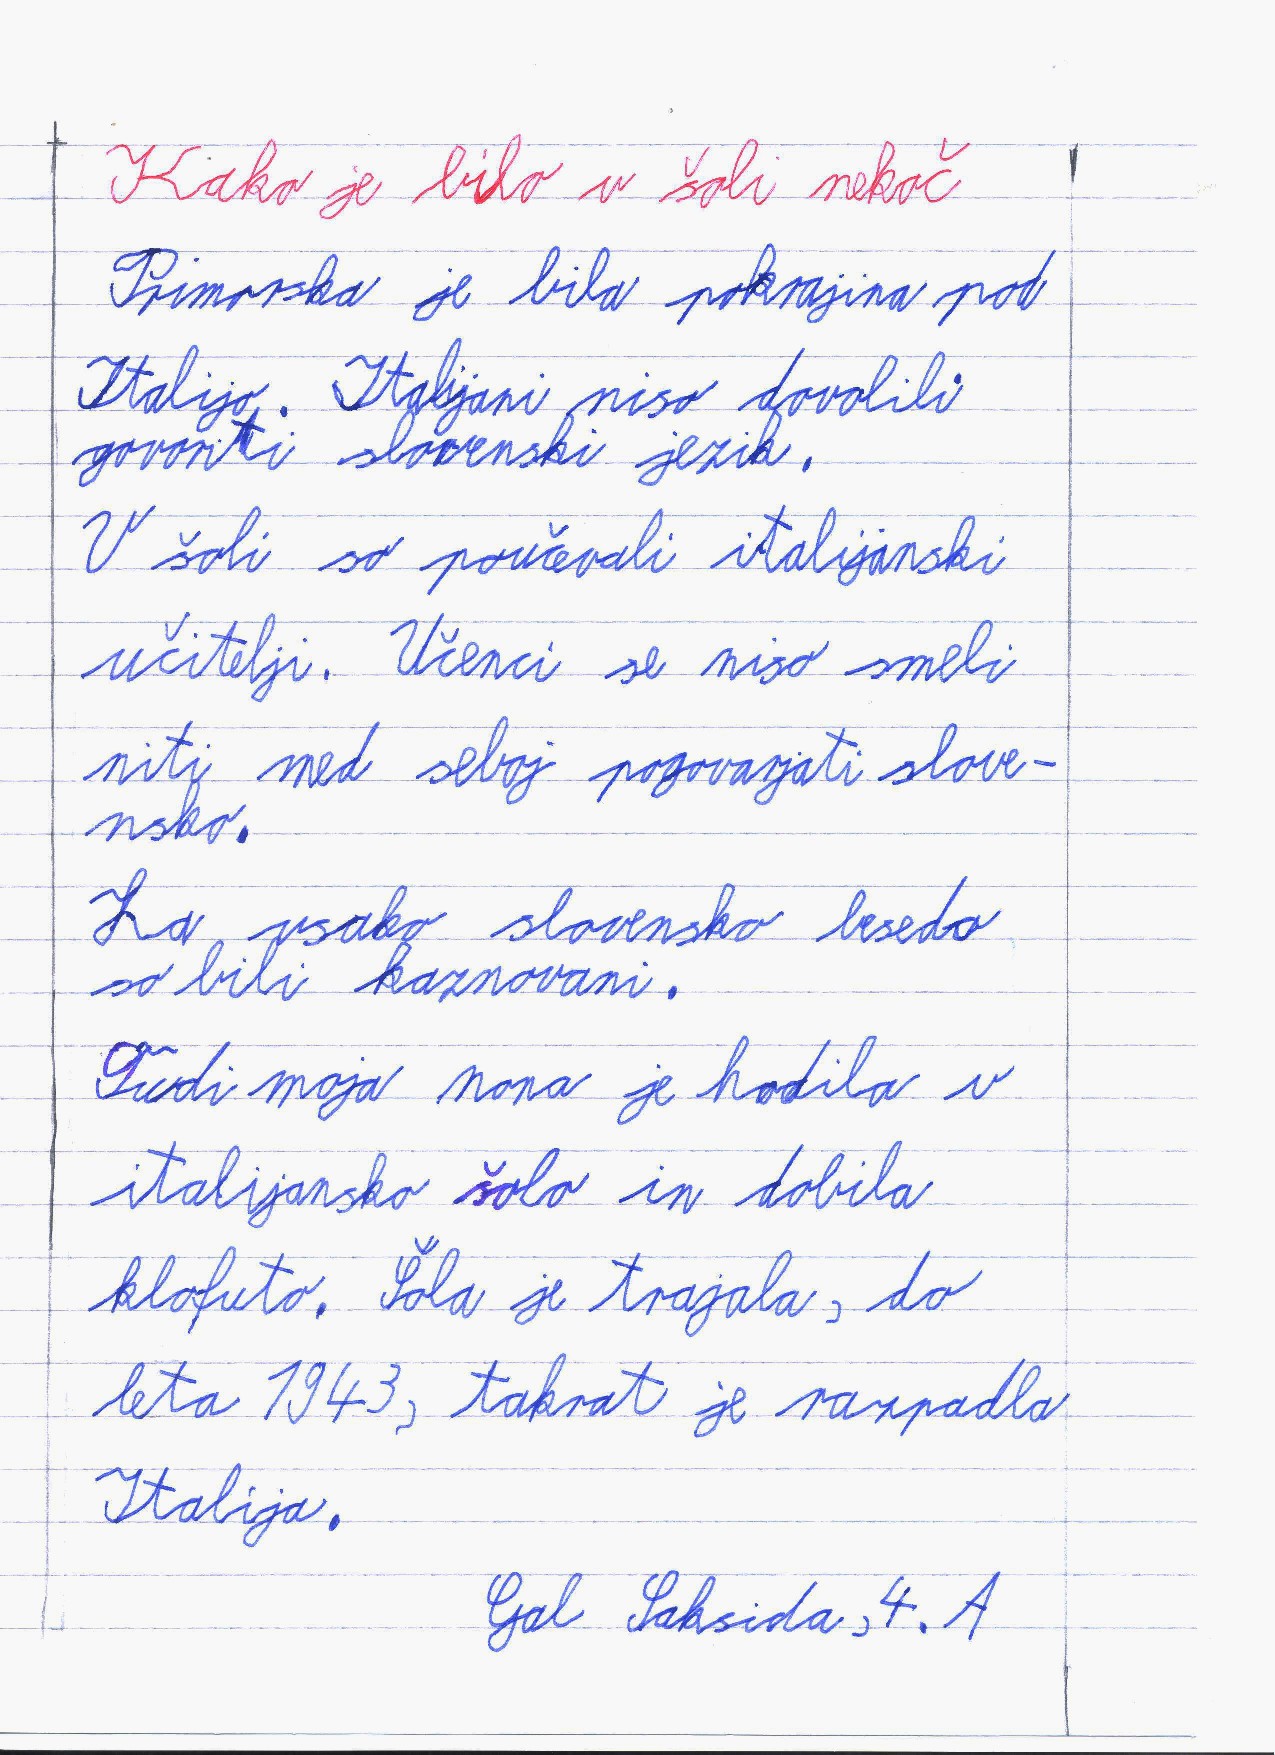 Kako je bilo v šoli nekoč
Primorska je bila pokrajina pod
Italijo. Italijani niso dovolili
govoriti slovenski jezik.
V šoli so poučevali italijanski
učitelji. Učenci se niso smeli
niti med seboj pogovarjati slove-
nsko.
Za vsako slovensko besedo
so bili kaznovani.
Tudi moja nona je hodila v
italijansko šolo in dobila
klofuto. Šola je trajala, do
leta 1943, takrat je razpadla
Italija.
Gal Saksida, 4. A